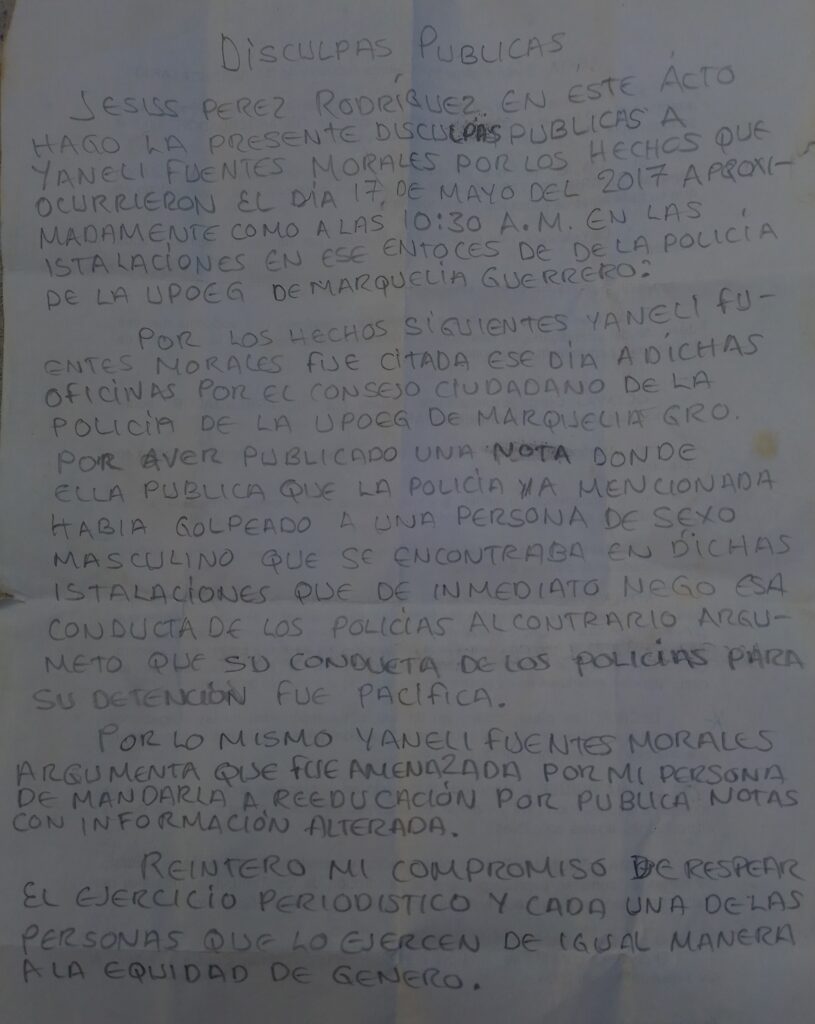 DISCULPAS PUBLICAS
JESUSS PEREZ RODRÍGUEZ. EN ÉSTE ACTO
HAGO LA PRESENTE DISCULPAS PUBLICAS A
YANELI FUENTES MORALES POR LOS HECHOS QUE
OCURRIERON EL DÍA 17 DE MAYO DEL 2017 APROXI-
MADAMENTE COMO A LAS 10:30 A.M. EN LAS
ISTALACIONES EN ESE ENTOCES DE DE LA POLICÍA
DE LA UPOEG DE MARQUELIA GUERRERO:
POR LOS HECHOS SIGUIENTES YANELI FU-
ENTES MORALES FUE CITADA ESE DIA A DICHAS
OFICINAS POR EL CONSEJO CIUDADANO DE LA
POLICIA DE LA UPOEG DE MARQUELIA GRO.
POR AVER PUBLICADO UNA NOTA DONDE
ELLA PUBLICA QUE LA POLICÍA YA MENCIONADA
HABIA GOLPEADO A UNA PERSONA DE SEXO
MASCULINO QUE SE ENCONTRABA EN DICHAS
ISTALACIONES QUE DE INMEDIATO NEGO ESA
CONDUCTA DE LOS POLICÍAS AL CONTRARIO ARGU-
METO QUE SU CONDUCTA DE LOS POLICIAS PARA
SU DETENCIÓN FUE PACÍFICA.
POR LO MISMO YANELI FUENTES MORALES
ARGUMENTA QUE FUE AMENAZADA POR MI PERSONA
DE MANDARLA A REEDUCACIÓN POR PUBLICA NOTAS
CON INFORMACIÓN ALTERADA.
REINTERO MI COMPROMISO DE RESPEAR
EL EJERCICIO PERIODISTICO Y CADA UNA DE LAS
PERSONAS QUE LO EJERCEN DE IGUAL MANERA
A LA EQUIDAD DE GENERO.